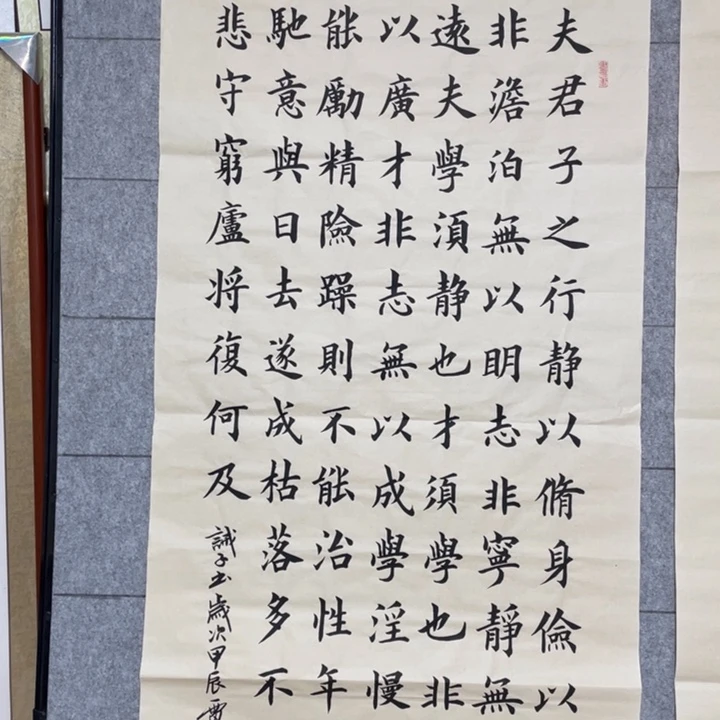 夫君子之行静以脩身儉以
非澹泊無以明志非寧靜無
遠夫學須静也才須學也非
以廣才非志無以成學淫慢
能勵精險躁則不能治性年
馳意與日去遂成枯落多不
悲守窮廬将復何及
誡子书歲次甲辰